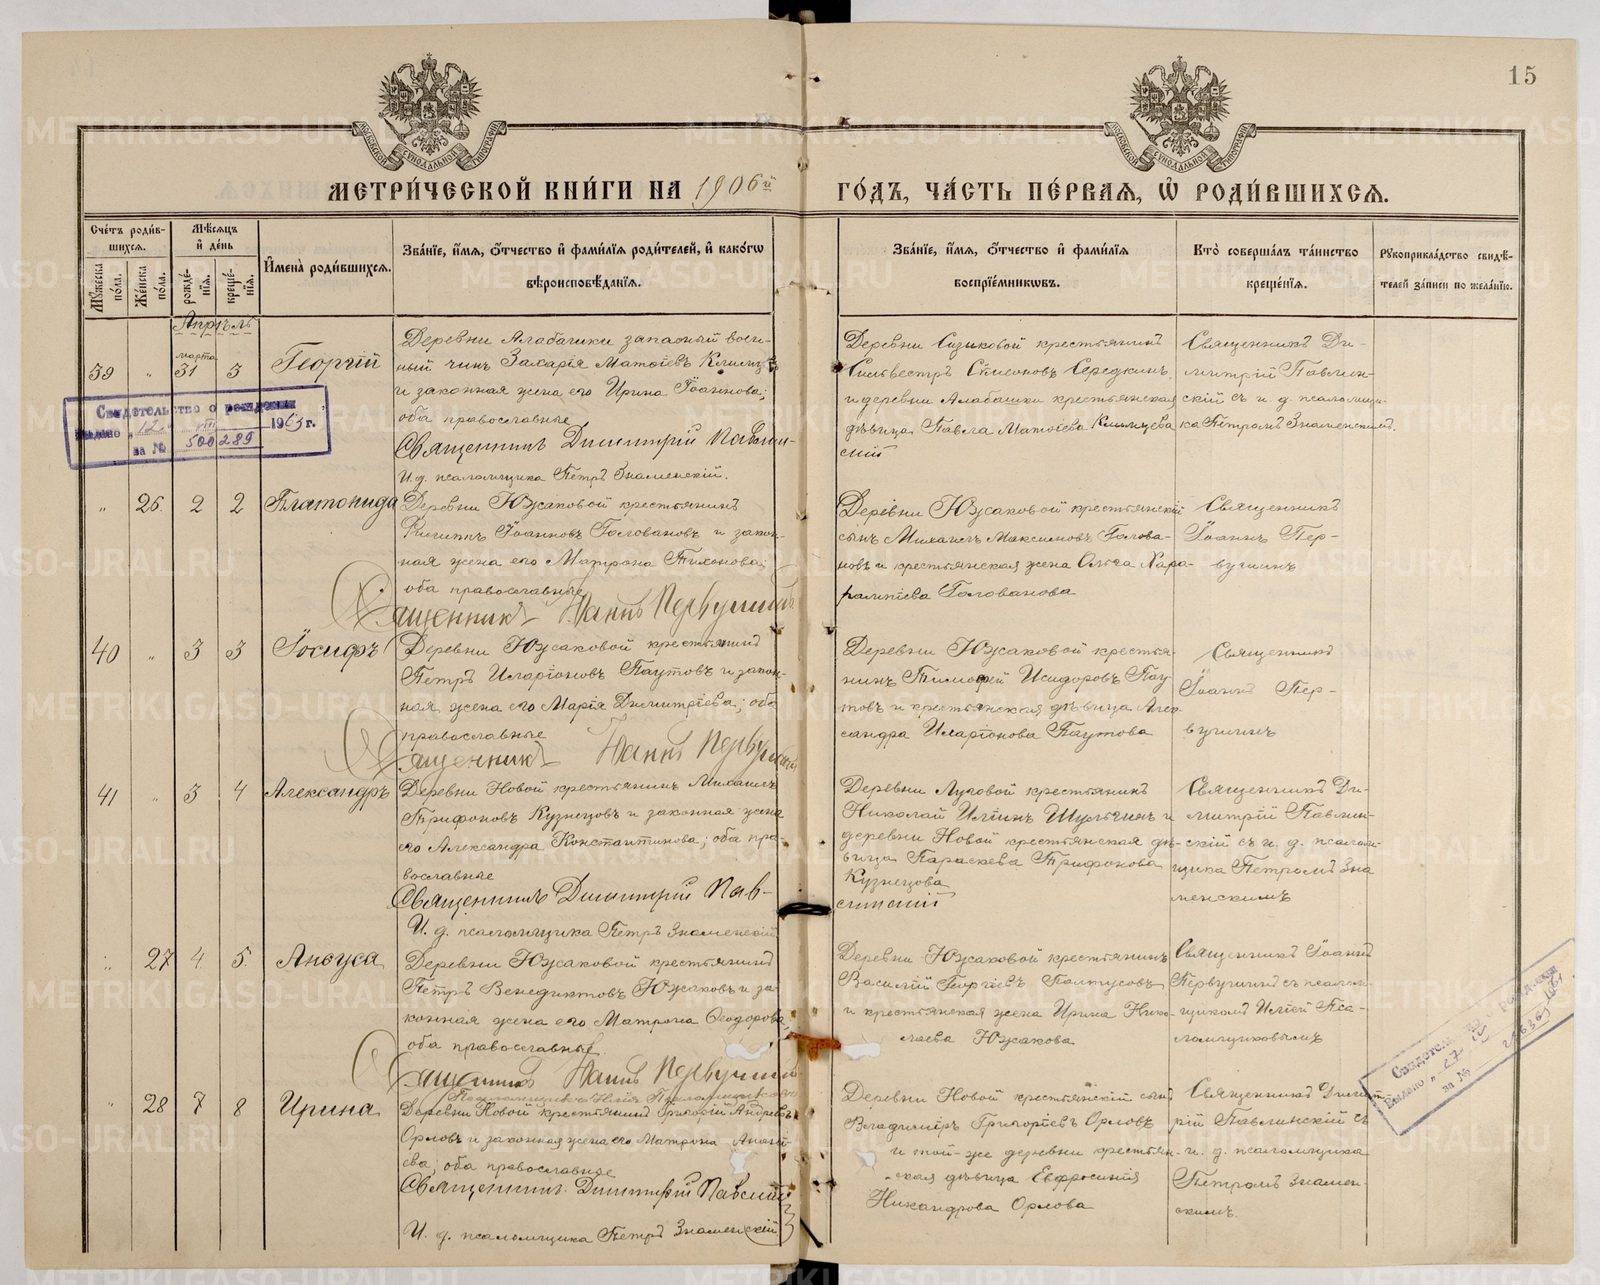 15
МЕТРИ́ЧЕСКОЙ КНИ́ГИ НА 1906й ГО́ДЪ, ЧА́СТЬ ПЕ́РВАЯ, Ѡ РОДИ́ВШИХСЯ.
Сче́тъ роди́в-
шихся.
Мѣсяцъ
и де́нь
Имена̀ роди́вшихся.
Зва́нїе, и́мя, о́тчество и фами́лїя роди́телей, и како́гѡ
вѣроисповѣ́данїя.
Зва́нїе, и́мя, о́тчество и фами́лїя
воспрїе́мниковъ.
Кто̀ соверша́лъ та́инство
креще́нїя.
Рукоприкла́дство свидѣ́-
телей за́писи по жела́нїю.
Му́жеска
по́ла.
Же́нска
по́ла.
рожде́-
нїя.
креще́-
нїя.
Апрѣль
39 " марта 31 3 Георгій
Деревни Алабашки запасный воен-
ный чинъ Захарія Матѳіевъ Клымцевъ
и законная жена его Ирина Іоаннова;
оба православные
Священникъ Димитрій Павлин-
скій
И. д. псаломщика Петръ Знаменскій.
Деревни Сизиковой крестьянинъ
Сильвестръ Стефановъ Середкинъ
и деревни Алабашки крестьянская
дѣвица Павла Матѳіева
Священникъ Ди-
митрій Павлин-
скій съ и. д. псаломщи-
ка Петромъ Знаменскимъ.
Свидетельство о рождении
выдано "12" VIII 1963 г.
за № 500289
" 26 2 2 Платонида
Деревни Южаковой крестьянинъ
Филиппъ Іоанновъ Головановъ и закон-
ная жена его Матрона Тихонова;
оба православные
Священникъ Іоаннъ Первушинъ
Деревни Южаковой крестьянскій
сынъ Михаилъ Максимовъ Голова-
новъ и крестьянская жена Ольга Хара-
лампіева Голованова
Священникъ
Іоаннъ Пер-
вушинъ
40 " 3 3 Іосифъ
Деревни Южаковой крестьянинъ
Петръ Иларіоновъ Паутовъ и закон-
ная жена его Марія Димитріева; оба
православные
Священникъ Іоаннъ Первушинъ
Деревни Южаковой крестья-
нинъ Тимофей Исидоровъ Пау-
товъ и крестьянская дѣвица Алек-
сандра Иларіонова Паутова
Священникъ
Іоаннъ Пер-
вушинъ
41 " 3 4 Александръ
Деревни Новой крестьянинъ Михаилъ
Трифоновъ Кузнецовъ и законная жена
его Александра Константинова; оба пра-
вославные
Священникъ Димитрій Пав-
линскій
И. д. псаломщика Петръ Знаменскій
Деревни Луговой крестьянинъ
Николай Иліинъ Шульгинъ и
деревни Новой крестьянская дѣ-
вица Параскева Трифонова
Кузнецова
Священникъ Ди-
митрій Павлин-
скій съ и. д. псалом-
щика Петромъ Зна-
менскимъ
" 27 4 5 Анѳуса
Деревни Южаковой крестьянинъ
Петръ Венедиктовъ Южаковъ и за-
конная жена его Матрона Ѳеодорова
оба православные.
Священникъ Іоаннъ Первушинъ
Псаломщикъ Илія Псаломщиковъ
Деревни Южаковой крестьянинъ
Василій Георгіевъ Полтусовъ
и крестьянская жена Ирина Нико-
лаева Южакова
Священникъ Іоаннъ
Первушинъ съ псалом-
щикомъ Иліей Пса-
ломщиковымъ
" 28 7 8 Ирина
Деревни Новой крестьянинъ Григорій Андреевъ
Орловъ и законная жена его Матрона Анані-
ева; оба православные
Священникъ Димитрій Павлинскій
И. д. псаломщика Петръ Знаменскій
Деревни Новой крестьянскій сынъ
Владиміръ Григоріевъ Орловъ
и той-же деревни крестьян-
ская дѣвица Евфросинія
Никандрова Орлова
Священникъ Димит-
рій Павлинскій съ
и. д. псаломщика
Петромъ Знамен-
скимъ.
METRIKI.GASO-URAL.RU